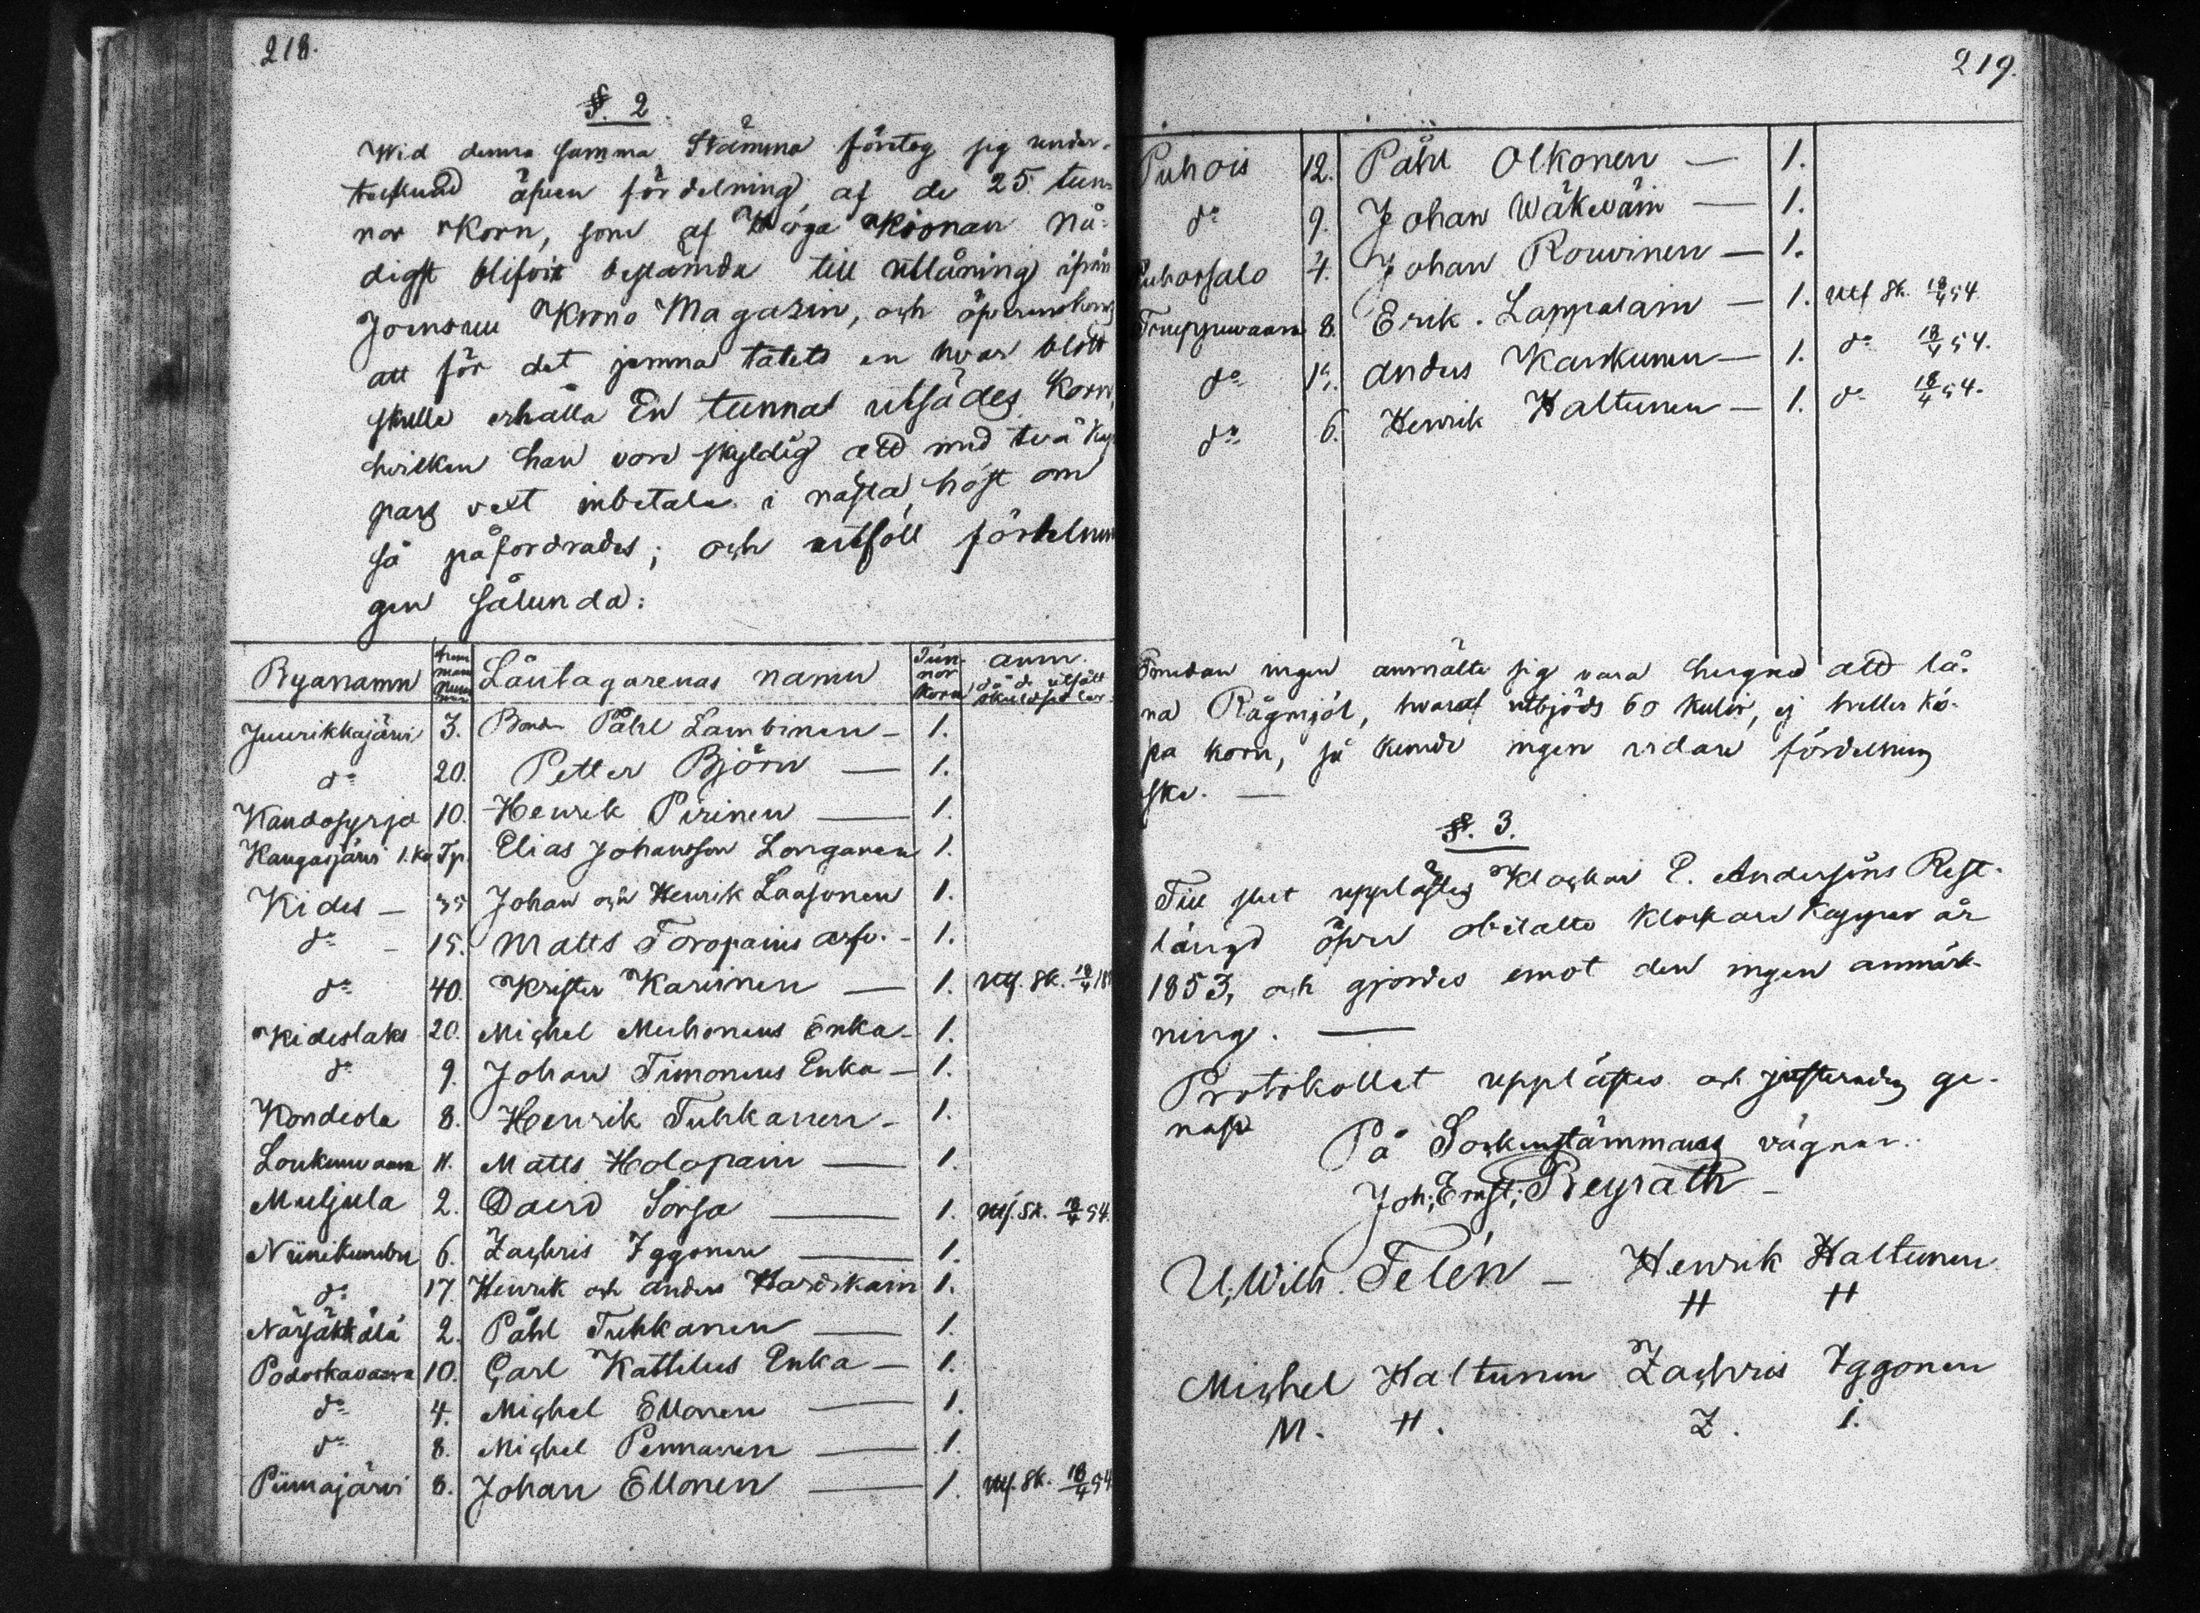 218.
§. 2.
Wid denna samma Stämma företog sig under-
tecknad äfven fördelning af de 25 tun-
nor Korn, som af Höga Kronan Nå-
digst blifvit bestämda till utlåning ifrån
Joensuu Krono Magasin, och öfverenskoms
att för det jemna talets en hvar blott
skulle erhålla En tunna utsädes Korn,
hvilken han vore skyldig att med två Kap-
pars vext inbetala i nästa höst om
så påfordrades; och utföll fördelnin
gen sålunda:
Byanamn Låntagarenas namn Tun-nor Korn anm. då de utfått
Juurikkajärvi 3. Bond. Påhl Lambinen – 1.
do 20. Petter Björn — 1.
Kandosyrjä 10. Henrik Pirinen — 1.
Kangasjärvi Tp. Elias Johansson Longanen 1.
Kides – 35 Johan och Henrik Laasonen 1.
do – 15. Matts Toropains arfv. – 1.
do 40. Krister Karvinen — 1. Utf. Sk. 18/4 18
Kideslaks 20. Michel Muhonens Enka – 1.
do 9. Johan Timonens Enka – 1.
Kondeola 8. Henrik Tuhkanen – 1.
Loukunvaara 11. Matts Holopain — 1.
Muljula 2. David Sorsa — 1. Utf. Sk. 18/4 54.
Niinikumbu 6. Zachris Iggonen — 1.
do 17. Henrik och Anders Hardikain 1.
Närsäkkälä 2. Påhl Tuhkanen — 1.
Podoskavaara 10. Carl Kattilus Enka – 1.
do 4. Michel Ellonen — 1.
do 8. Michel Pennanen — 1.
Piimajärvi 8. Johan Ellonen — 1. Utf. Sk. 18/4 54
219.
Puhois 12. Påhl Olkonen — 1.
do 9. Johan Wäkeväin — 1.
Puhossalo 4. Johan Rouvinen — 1.
Truppuvaara 8. Erik Lappalain — 1. Utf Sk. 18/4 54.
do Anders Karkunen — 1. do 18/4 54.
do 6. Henrik Haltunen — 1. do 18/4 54.
Emedan ingen anmälte sig vara hugad att lå-
na Rågmjöl, hwaraf utbjöds 60 Kulor, ej heller kö-
pa korn, så kunde ingen vidare fördelning
ske. —
§. 3.
Till slut upplästes Klockar E. Andersins Rest-
längd öfver obetalte Klockare Kappor år
1853, och gjordes emot den ingen anmärk-
ning. —
Protokollet upplästes och justerades ge-
nast
På Sockenstämmans vägnar:
Joh: Ernst: Reyrath –
U; Wilh. Telén – Henrik Haltunen
H H
Michel Haltunen Zachris Iggonen
M. H. Z. I.